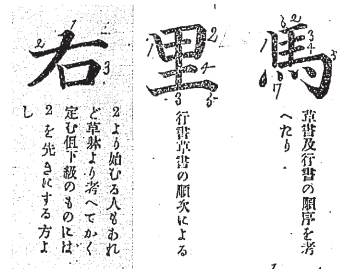 馬
草書及行書の順序を考
へたり.
1 2 3 4 5
里
行書草書の順次による
1 2 3
右
2より始むる人もあれ
ど草躰より考へてかく
定む但下級のものには
2を先きにする方よ
し